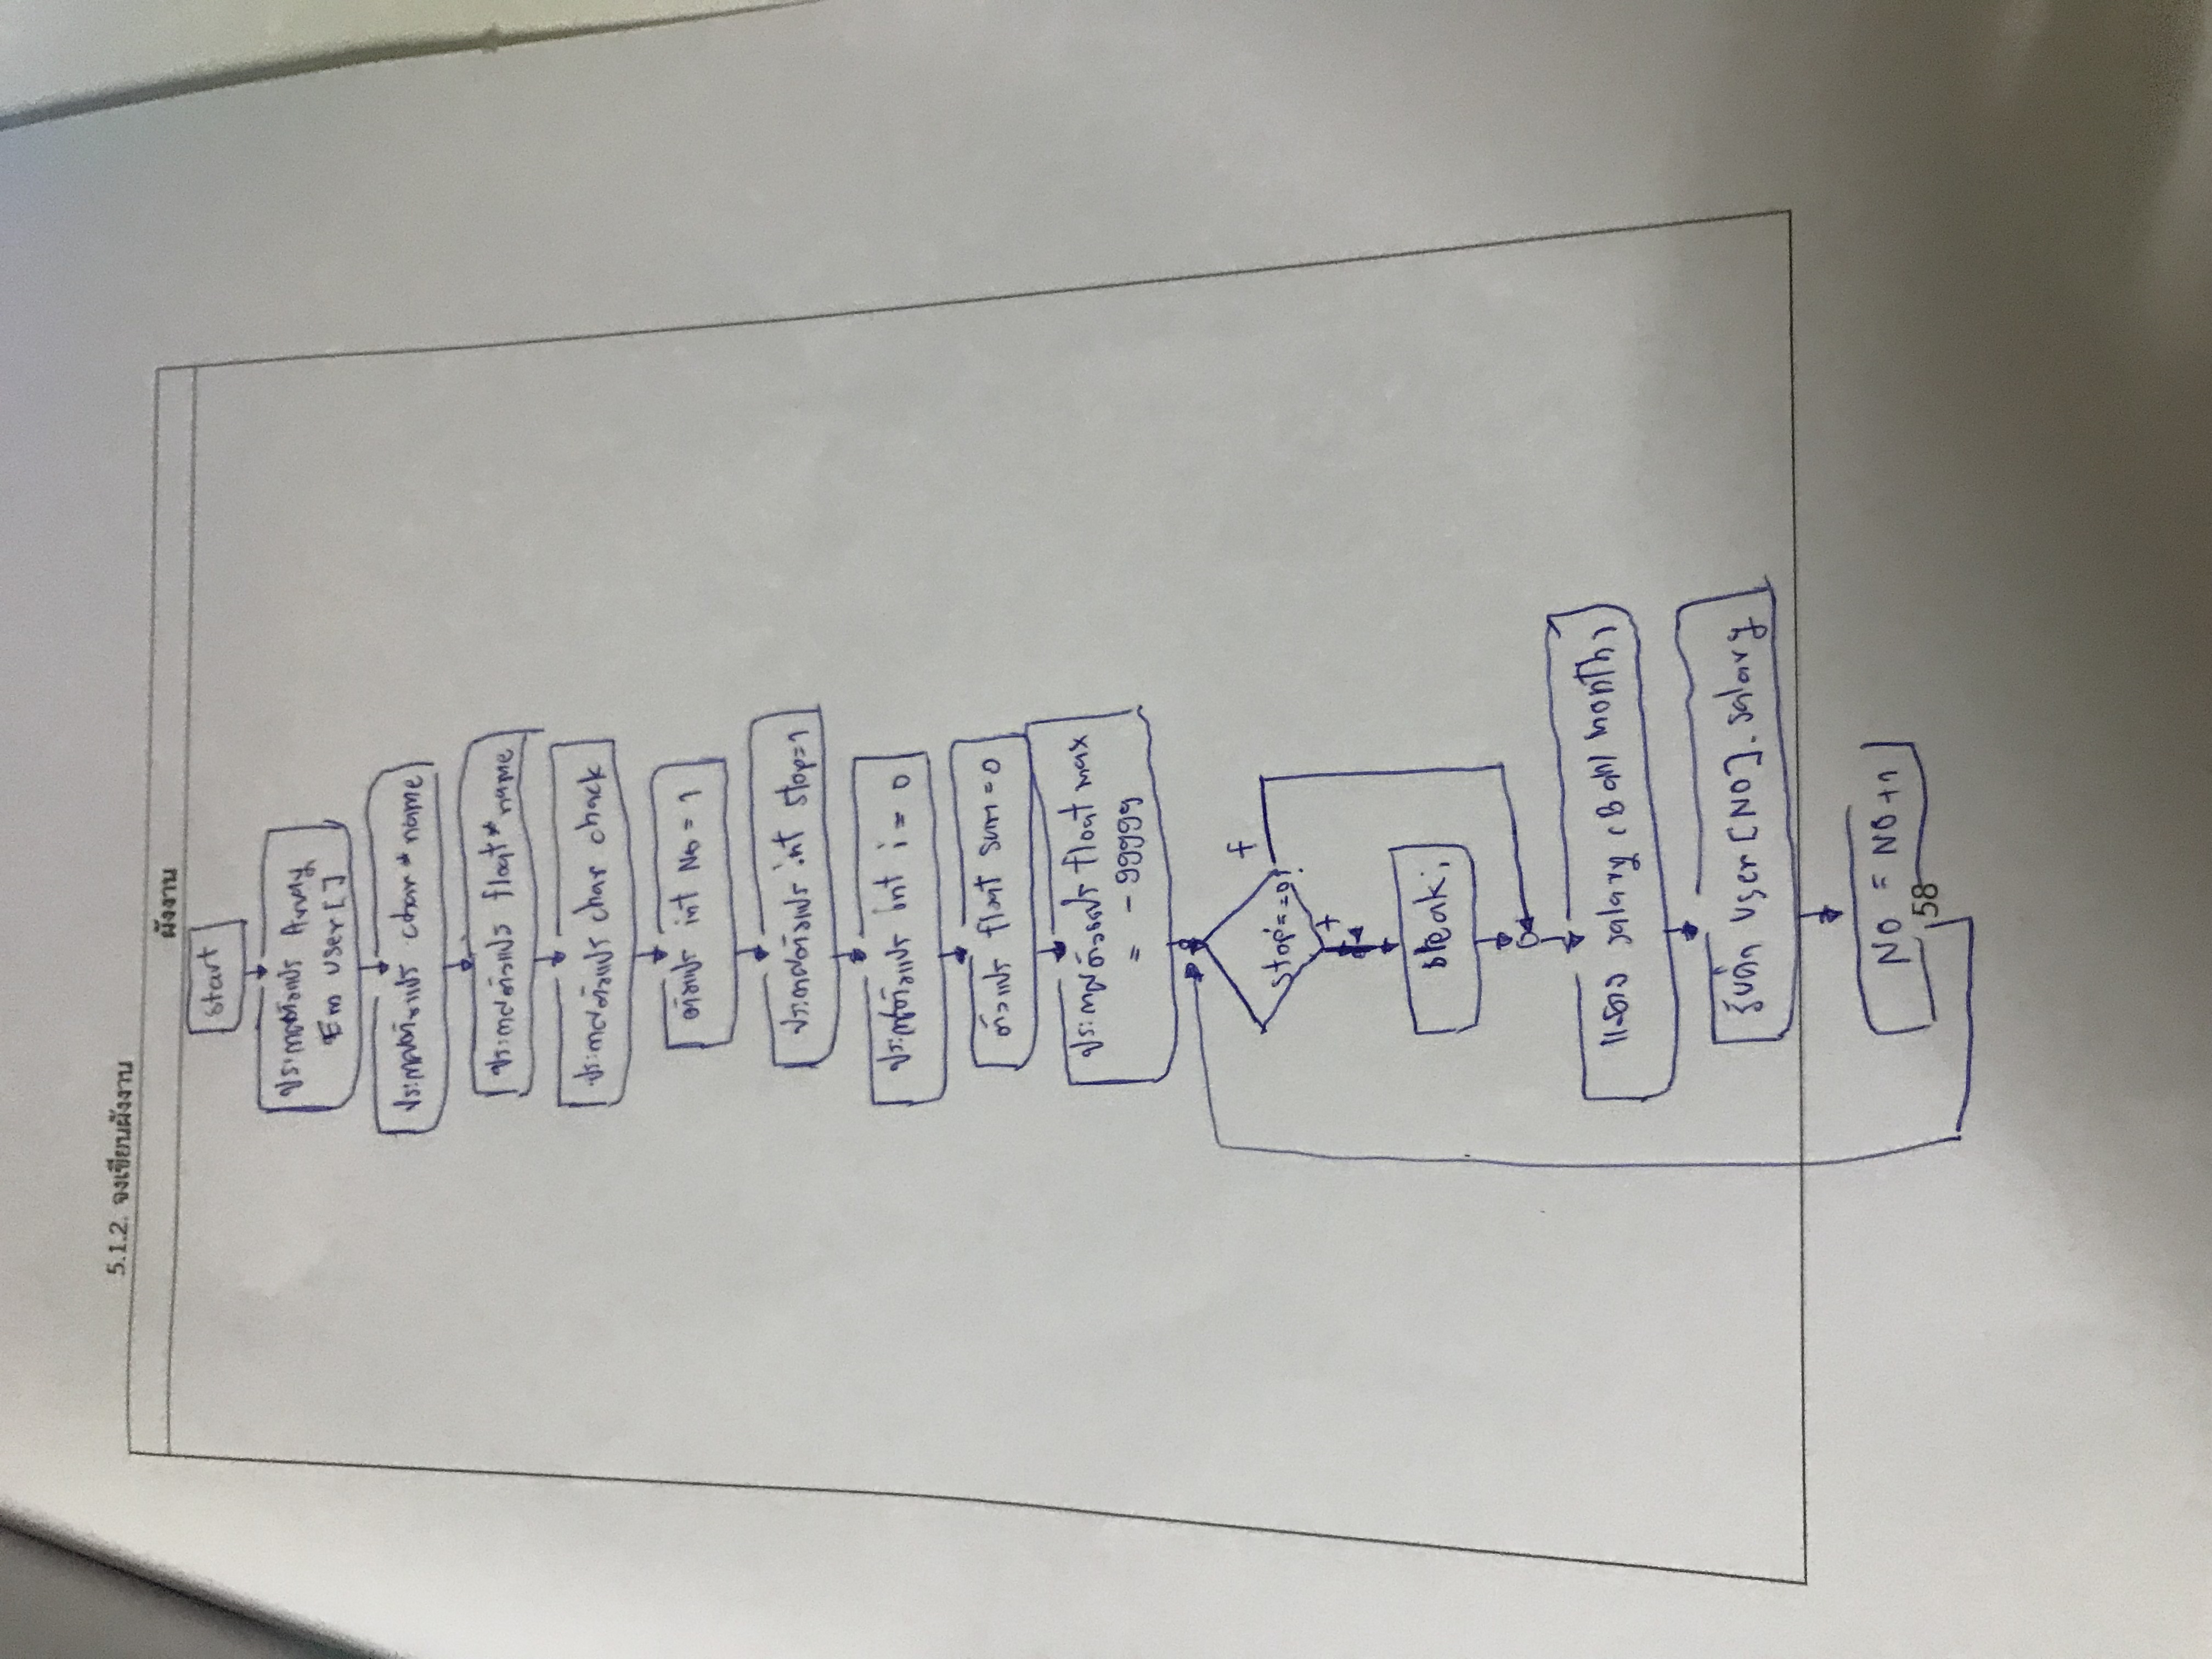 5.1.2. จงเขียนผังงาน
ผังงาน
start
ประกาศตัวแปร Array
Em user[]
ประกาศตัวแปร char*name
ประกาศตัวแปร float*name
ประกาศตัวแปร char chack
ตัวแปร int No = 1
ประกาศตัวแปร int stop=1
ประกาศตัวแปร int i = 0
ตัวแปร float sum = 0
ประกาศตัวแปร float max
= -99999
stop==0?
f
t
break;
แสดง salary (Bah/month)
รับค่า user[NO].salary
NO = NO+1
58